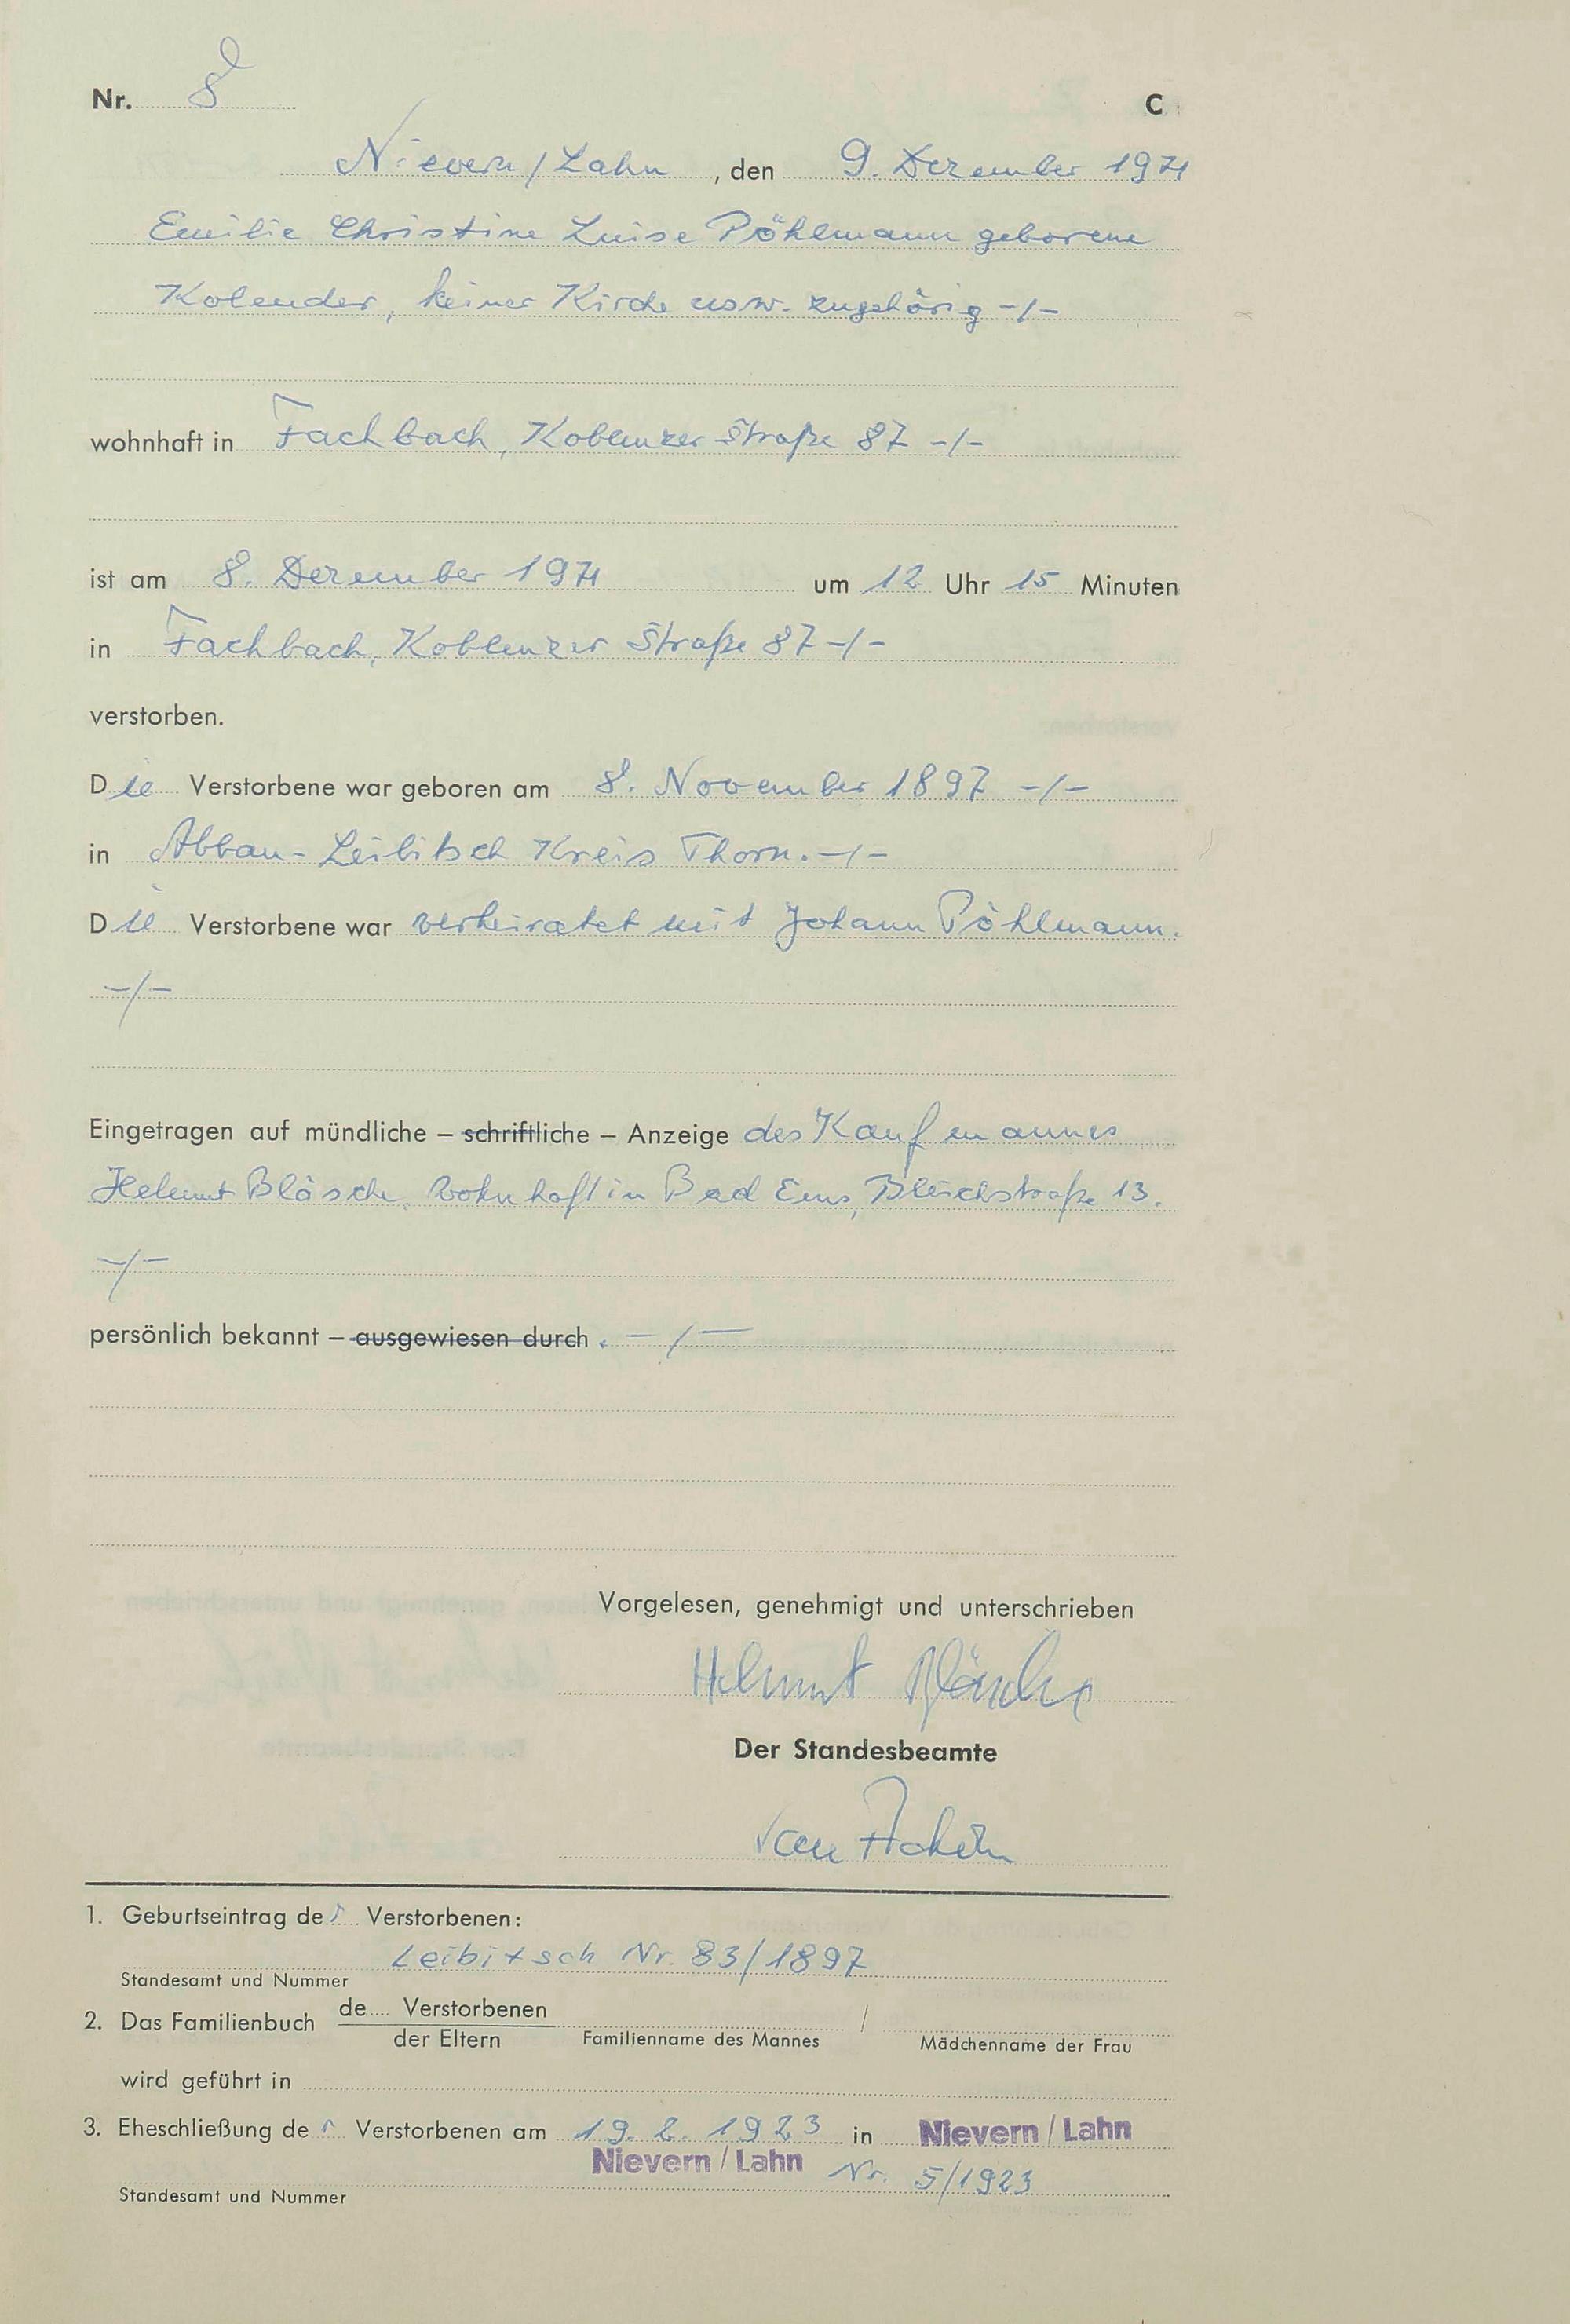 Nr. 8
C
Nievern/Lahn, den 9. Dezember 1971
Emilie Christine Luise Pöhlmann geborene
Kolender, keiner Kirche usw. zugehörig -/-
wohnhaft in Fachbach, Koblenzer Straße 87 -/-
ist am 8. Dezember 1971 um 12 Uhr 15 Minuten
in Fachbach, Koblenzer Straße 87 -/-
verstorben.
Die Verstorbene war geboren am 8. November 1897 -/-
in Abbau-Leibitsch Kreis Thorn. -/-
Die Verstorbene war verheiratet mit Johann Pöhlmann.
-/-
Eingetragen auf mündliche – schriftliche – Anzeige des Kaufmannes
Helmut Bläsche, wohnhaft in Bad Ems, Bleichstraße 13.
-/-
persönlich bekannt – ausgewiesen durch . -/-
Vorgelesen, genehmigt und unterschrieben
Helmut Bläsche
Der Standesbeamte
van
1. Geburtseintrag der Verstorbenen:
Leibitsch Nr. 83/1897
Standesamt und Nummer
2. Das Familienbuch de Verstorbenen /
der Eltern Familienname des Mannes Mädchenname der Frau
wird geführt in
3. Eheschließung der Verstorbenen am 19. 2. 1923 in Nievern/Lahn
Nievern/Lahn Nr. 5/1923
Standesamt und Nummer